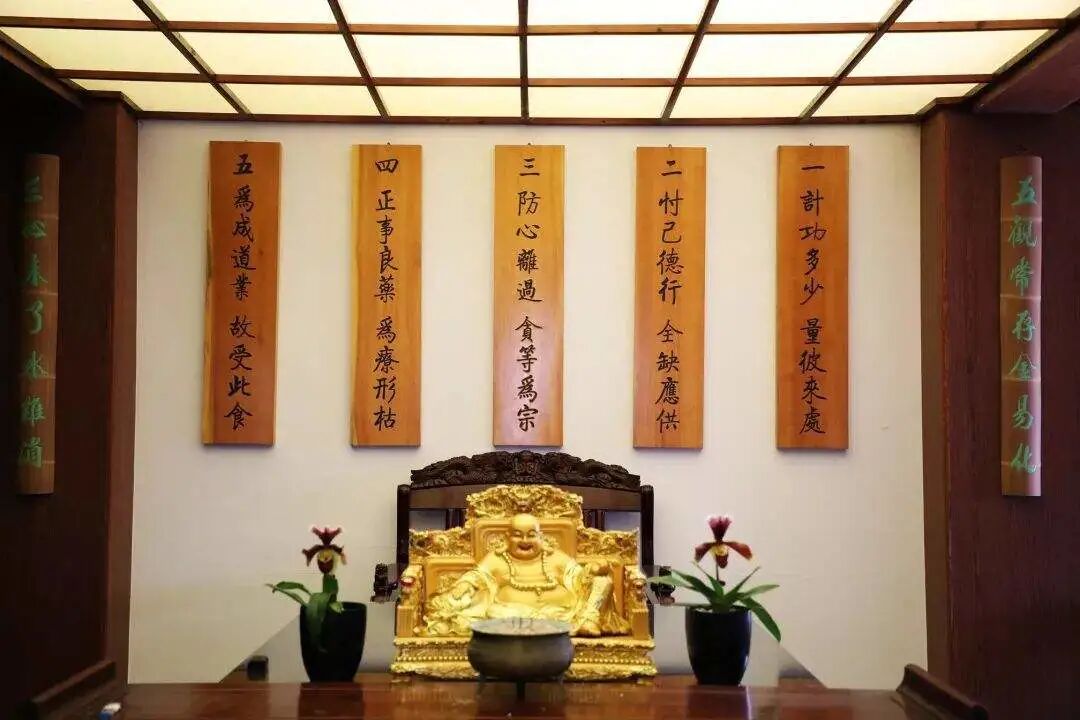 五觀常存金易化
一 計功多少 量彼來處
二 忖己德行 全缺應供
三 防心離過 貪等爲宗
四 正事良藥 爲療形枯
五 爲成道業 故受此食
三心未了水難消